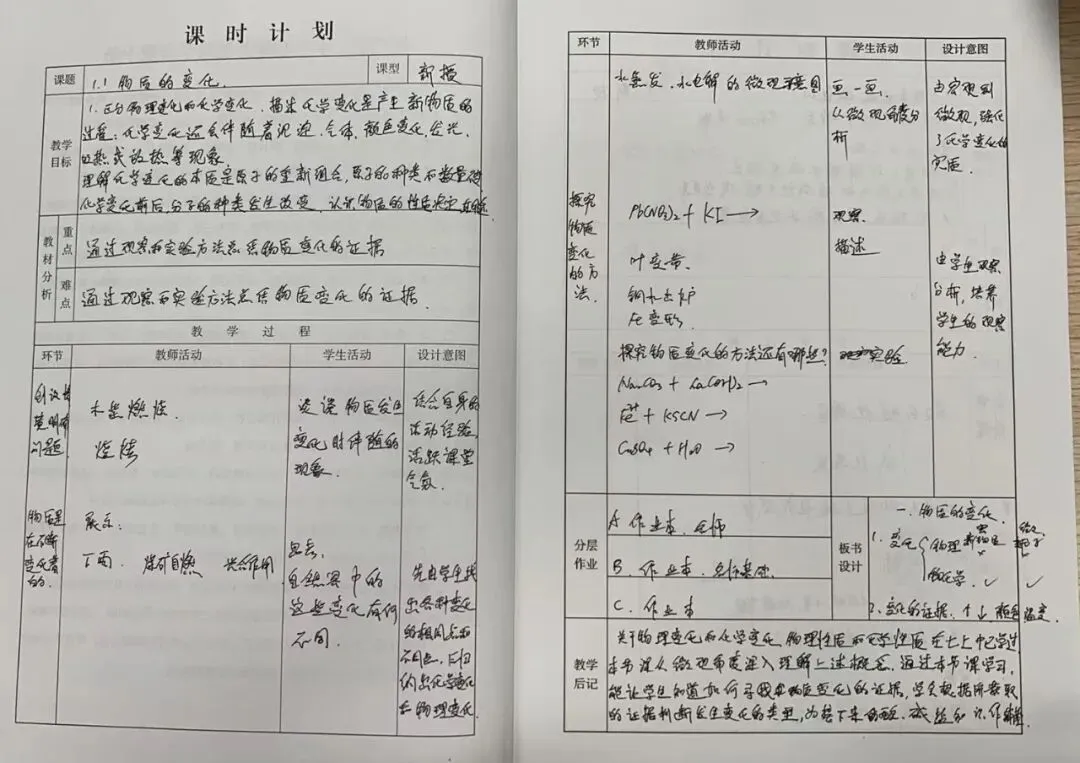 课时计划
课题 1.1 物质的变化 课型 新授
教学目标
1. 区分物理变化和化学变化。描述化学变化是产生新物质的
过程；化学变化还会伴随着沉淀、气体、颜色变化、发光、
吸热或放热等现象
理解化学变化的本质是原子的重新组合，原子的种类和数量
化学变化前后，分子的种类发生改变，认识物质的性质决定
教材分析
重点 通过观察和实验方法总结物质变化的证据
难点 通过观察和实验方法总结物质变化的证据.
教学过程
环节 教师活动 学生活动 设计意图
问题.
木炭燃烧.
烧烤
谈谈物质发生
变化时伴随的
现象.
结合自身的
活动经验,
活跃课堂
气氛.
物质是
在不断
变化着
的.
展示:
下雨. 煤矿自燃 光合作用
自然界中的
这些变化有何
不同.
先由学生找
出各种变化
的相同点和
不同点, 归
纳出化学变化
与物理变化
环节 教师活动 学生活动 设计意图
探究
物质
变化
的方
法.
水蒸发、水电解的微观示意图
画一画.
从微观角度分
析
由宏观到
微观, 强化
了化学变化的
实质.
Pb(NO₃)₂ + KI →
观察.
描述
叶变黄.
钢水出炉
由学生观察
分析, 培养
学生的观察
能力.
探究物质变化的方法还有哪些?
实验
Na₂CO₃ + Ca(OH)₂ →
+ KSCN →
CuSO₄ + H₂O →
分层作业
A 作业本、名师
B. 作业本、名师基础.
C. 作业本
板书设计
一. 物质的变化.
1. 变化 { 物理 ×
化学. ✓ ✓
2. 变化的证据: ↑↓ 颜色 温度.
教学后记
关于物理变化和化学变化、物理性质和化学性质在七上中已学过
本节课从微观角度深入理解上述概念. 通过本节课学习,
能让学生知道如何寻找物质变化的证据, 学会根据所获取
的证据判断发生变化的类型, 为接下来的酸、碱、盐知识作铺垫